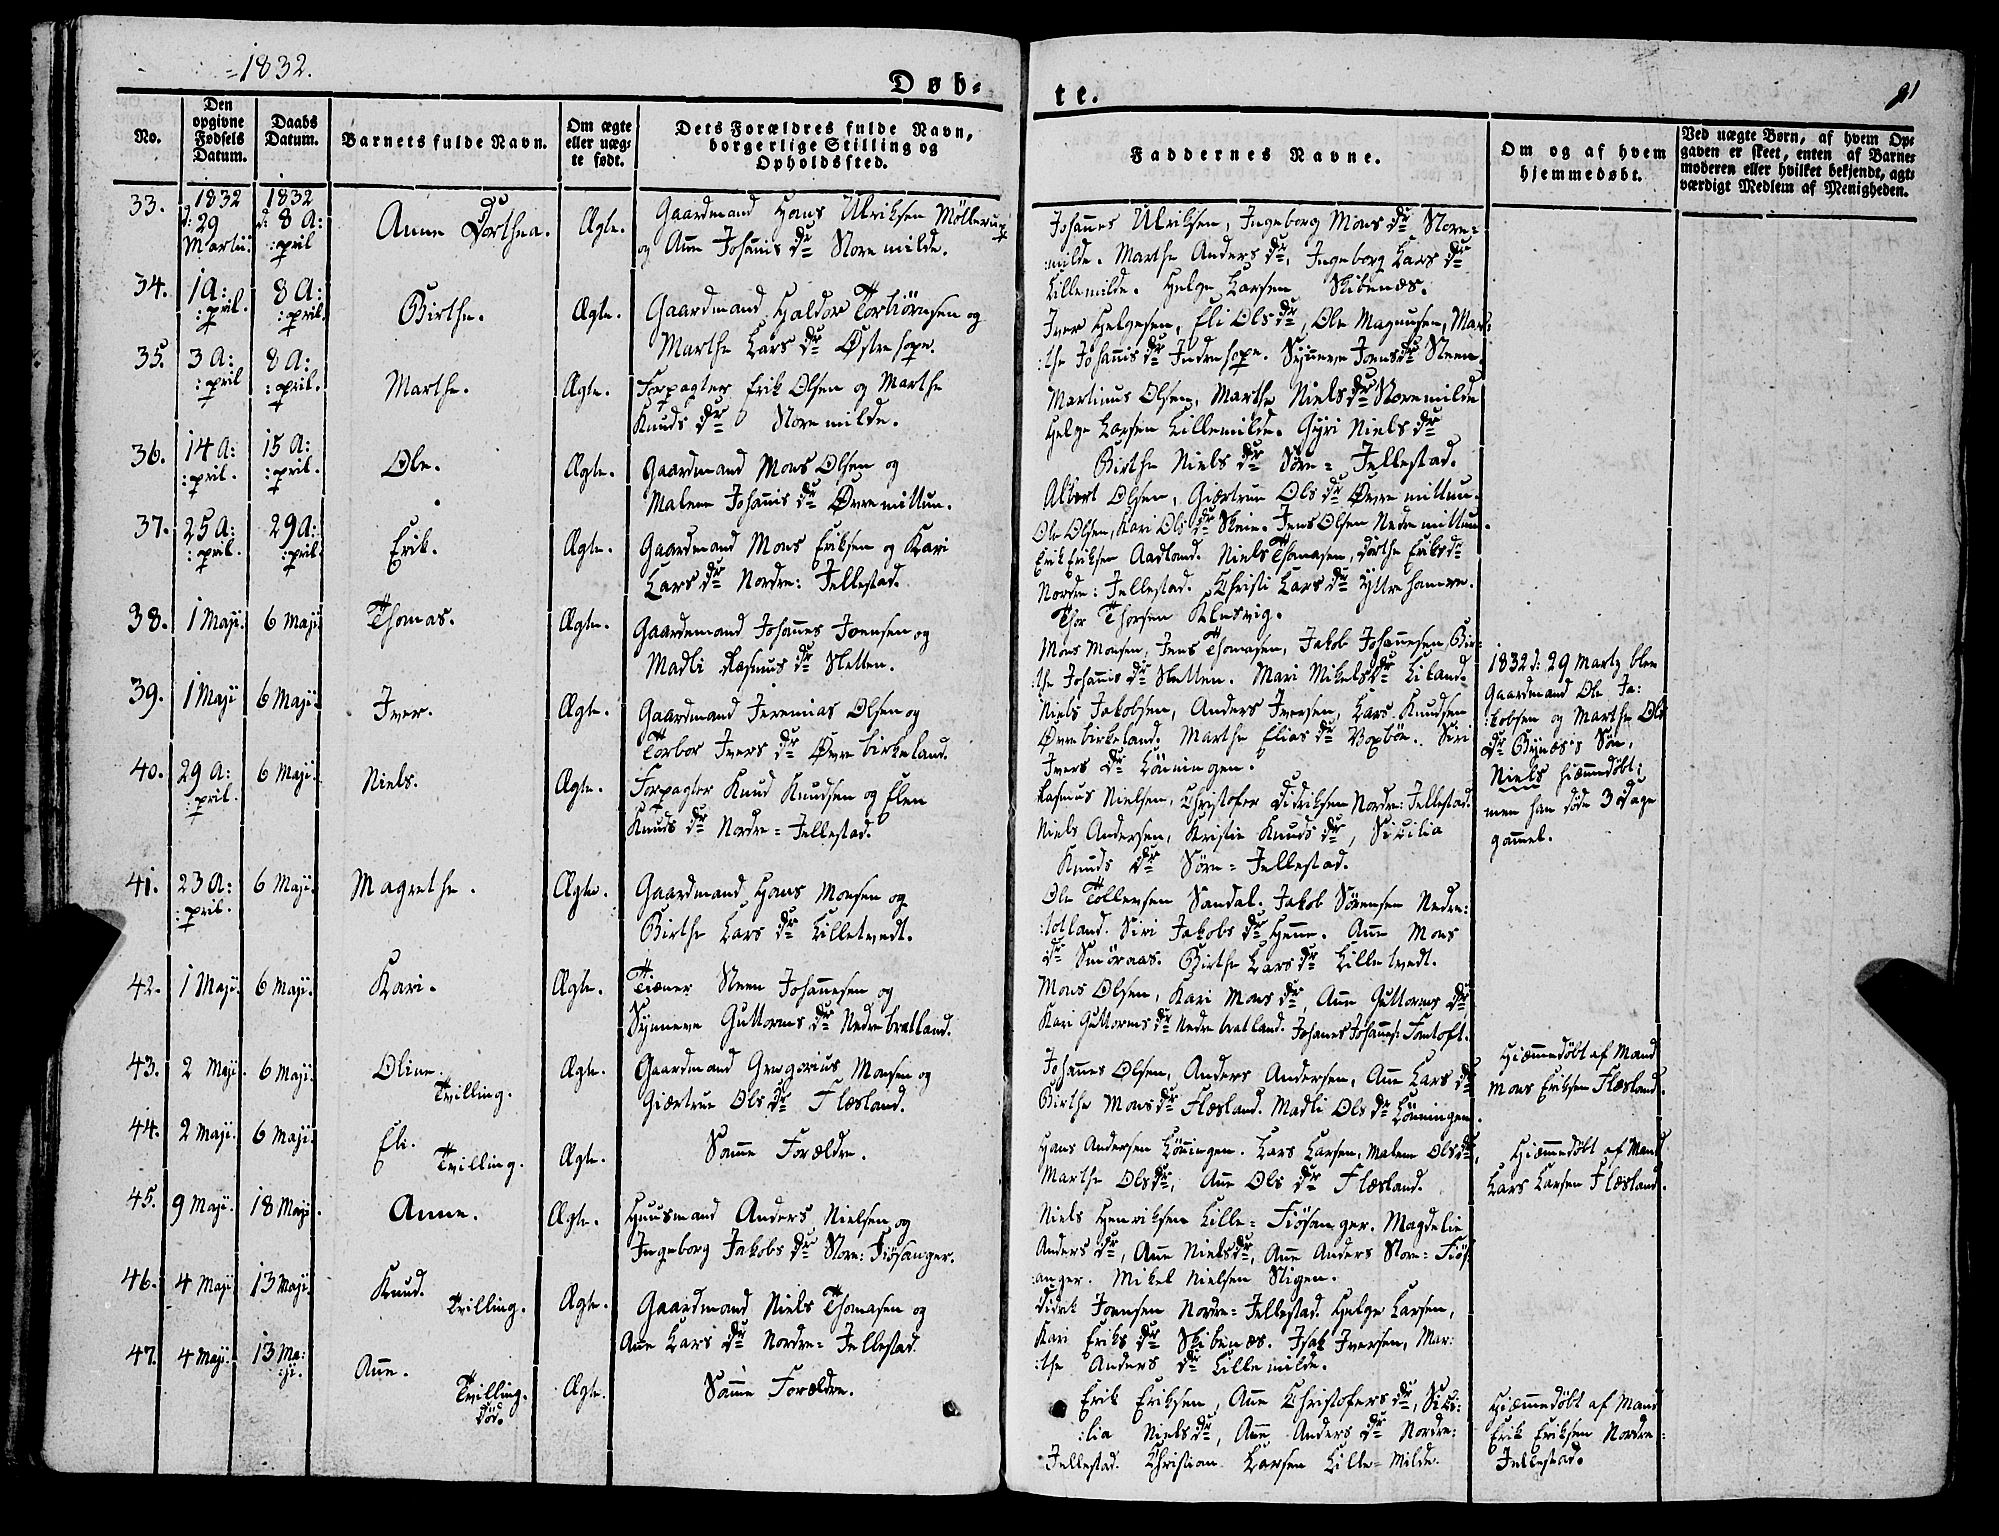 =1832.
Døb-
te.
No.
Den opgivne Fødsels Datum.
Daabs Datum.
Barnets fulde Navn.
Om ægte eller uæg- te født.
Dets Forældres fulde Navn, borgerlige Stilling og Opholdssted.
Faddernes Navne.
Om og af hvem hjemmedøbt.
Ved uægte Børn, af hvem Op- gaven er skeet, enten af Barne- moderen eller hvilket bekjendt, agt- værdigt Medlem af Menigheden.
33. 1832 d: 29 Martii 1832 d: 8 A: :pril Anne Dorthea. Ægte. Gaardmand Hans Ulriksen Møllerup
og Anne Johannis dr Storemilde.
Johannes Ulriksen, Ingeborg Mons dr Store=
:milde. Marthe Anders dr, Ingeborg Lars dr
Lillemilde. Helge Larsen Skibenæs.
34. 1 A: :pril. 8 A: :pril. Birthe. Ægte. Gaardmand Haldor Torbiørnsen og
Marthe Lars dr Østrehope.
Iver Helgesen, Eli Ols dr, Ole Magnusen, Mar:
:the Johannis dr Indrehope. Synneve Joens dr Steen.
35. 3 A: :pril 8 A: :pril. Marthe. Ægte. Forpagter Erik Olsen og Marthe
Knuds dr Storemilde.
Martinus Olsen, Marthe Niels dr Storemilde
Helge Larsen Lillemilde. Gyri Niels dr
Birthe Niels dr Søre= Jellestad.
36. 14 A: :pril. 15 A: :pril. Ole. Ægte. Gaardmand Mons Olsen og
Malene Johannis dr Øvremittun.
Albert Olsen, Giertrue Ols dr Øvremittun.
Ole Olsen, Kari Ols dr Skeie. Jens Olsen Nedremittun.
37. 25 A: :pril. 29 A: :pril. Erik. Ægte. Gaardmand Mons Eriksen og Kari
Lars dr Nordre: Jellestad.
Erik Eriksen Aadland. Niels Thomasen, Dorthe Eriks dr
Nordre: Jellestad. Christi Lars dr Yttrehamre.
Thor Thorsen
38. 1 Maji. 6 Maji. Thomas. Ægte. Gaardmand Johannes Joensen og
Madli Rasmus dr Sletten.
Mons Monsen, Jens Thomasen, Jakob Johannesen, Bir:
:the Johannis dr Sletten. Mari Mikels dr Liland.
39. 1 Maji 6 Maji. Iver. Ægte. Gaardmand Jeremias Olsen og
Torbor Ivers dr Øvrebirkeland.
Niels Jakobsen, Anders Iversen, Lars Knudsen
Øvrebirkeland. Marthe Elias dr Siri
Ivers dr Lønningen.
1832 d: 29 Marty blev
Gaardmand Ole Ja:
:kobsen og Marthe Ols
dr Bynæs's Søn,
Niels hiemmedøbt:
men han døde 3 Dage
gammel.
40. 29 A: :pril. 6 Maji. Niels. Ægte. Forpagter Knud Knudsen og Elen
Knuds dr Nordre= Jellestad.
Rasmus Nielsen, Christofer Didriksen Nordre: Jellestad.
Niels Andersen, Kristie Knuds dr, Sicilia
Knuds dr Søre= Jellestad.
41. 23 A: :pril. 6 Maji. Magrethe. Ægte. Gaardmand Hans Monsen og
Birthe Lars dr Lilletvedt.
Ole Tollevsen Sandal. Jakob Sørensen Nedre:
:totland. Siri Jakobs dr Anne Mons
dr Smøraas. Birthe Lars dr Lilletvedt.
42. 1 Maji. 6 Maji. Kari. Ægte. Tiener Steen Johannesen og
Synneve Guttorms dr Nedrebratland.
Mons Olsen, Kari Mons dr, Anne Guttorms dr
Kari Guttorms dr Nedrebratland. Johannes Johannes: Tomtoft.
43. 2 Maji. 6 Maji. Oline. Tvilling. Ægte. Gaardmand Gregorius Monsen og
Giertrue Ols dr Flesland.
Johannes Olsen, Anders Andersen, Anne Lars dr
Birthe Mons dr Flesland. Madli Ols dr Lønningen.
Hiemmedøbt af Mand
Mons Eriksen Flesland.
44. 2 Maji. 6 Maji. Eli. Tvilling. Ægte. Samme Forældre.
Hans Andersen Lønningen. Lars Larsen, Malene Ols dr,
Marthe Ols dr, Anne Ols dr Flesland.
Hiemmedøbt af Mand
Lars Larsen Flesland.
45. 9 Maji. 18 Maji. Anne. Ægte. Huusmand Anders Nielsen og
Ingeborg Jakobs dr Store: Fiøsanger.
Niels Henriksen Lille= Fiøsanger. Magdelie
Anders dr, Anne Niels dr, Anne Anders Store= Fiøs
:anger. Mikel Nielsen Stigen.
46. 4 Maji 13 Maji. Knud. Tvilling. Ægte. Gaardmand Niels Thomasen og
Anne Lars dr Nordre= Jellestad.
Didrik Joensen Nordre= Jellestad. Helge Larsen,
Kari Eriks dr Skibenæs. Isak Iversen, Mar:
:the Anders dr Lillemilde.
47. 4 Maji. 13 Ma: :ji. Anne. Tvilling. Død. Ægte. Samme Forældre.
Erik Eriksen, Anne Christofers dr, Sici:
:lia Niels dr, Anne Anders dr Nordre:
Jellestad. Christian Larsen Lille= Milde.
Hiemmedøbt af Mand
Erik Eriksen Nordre=
Jellestad.